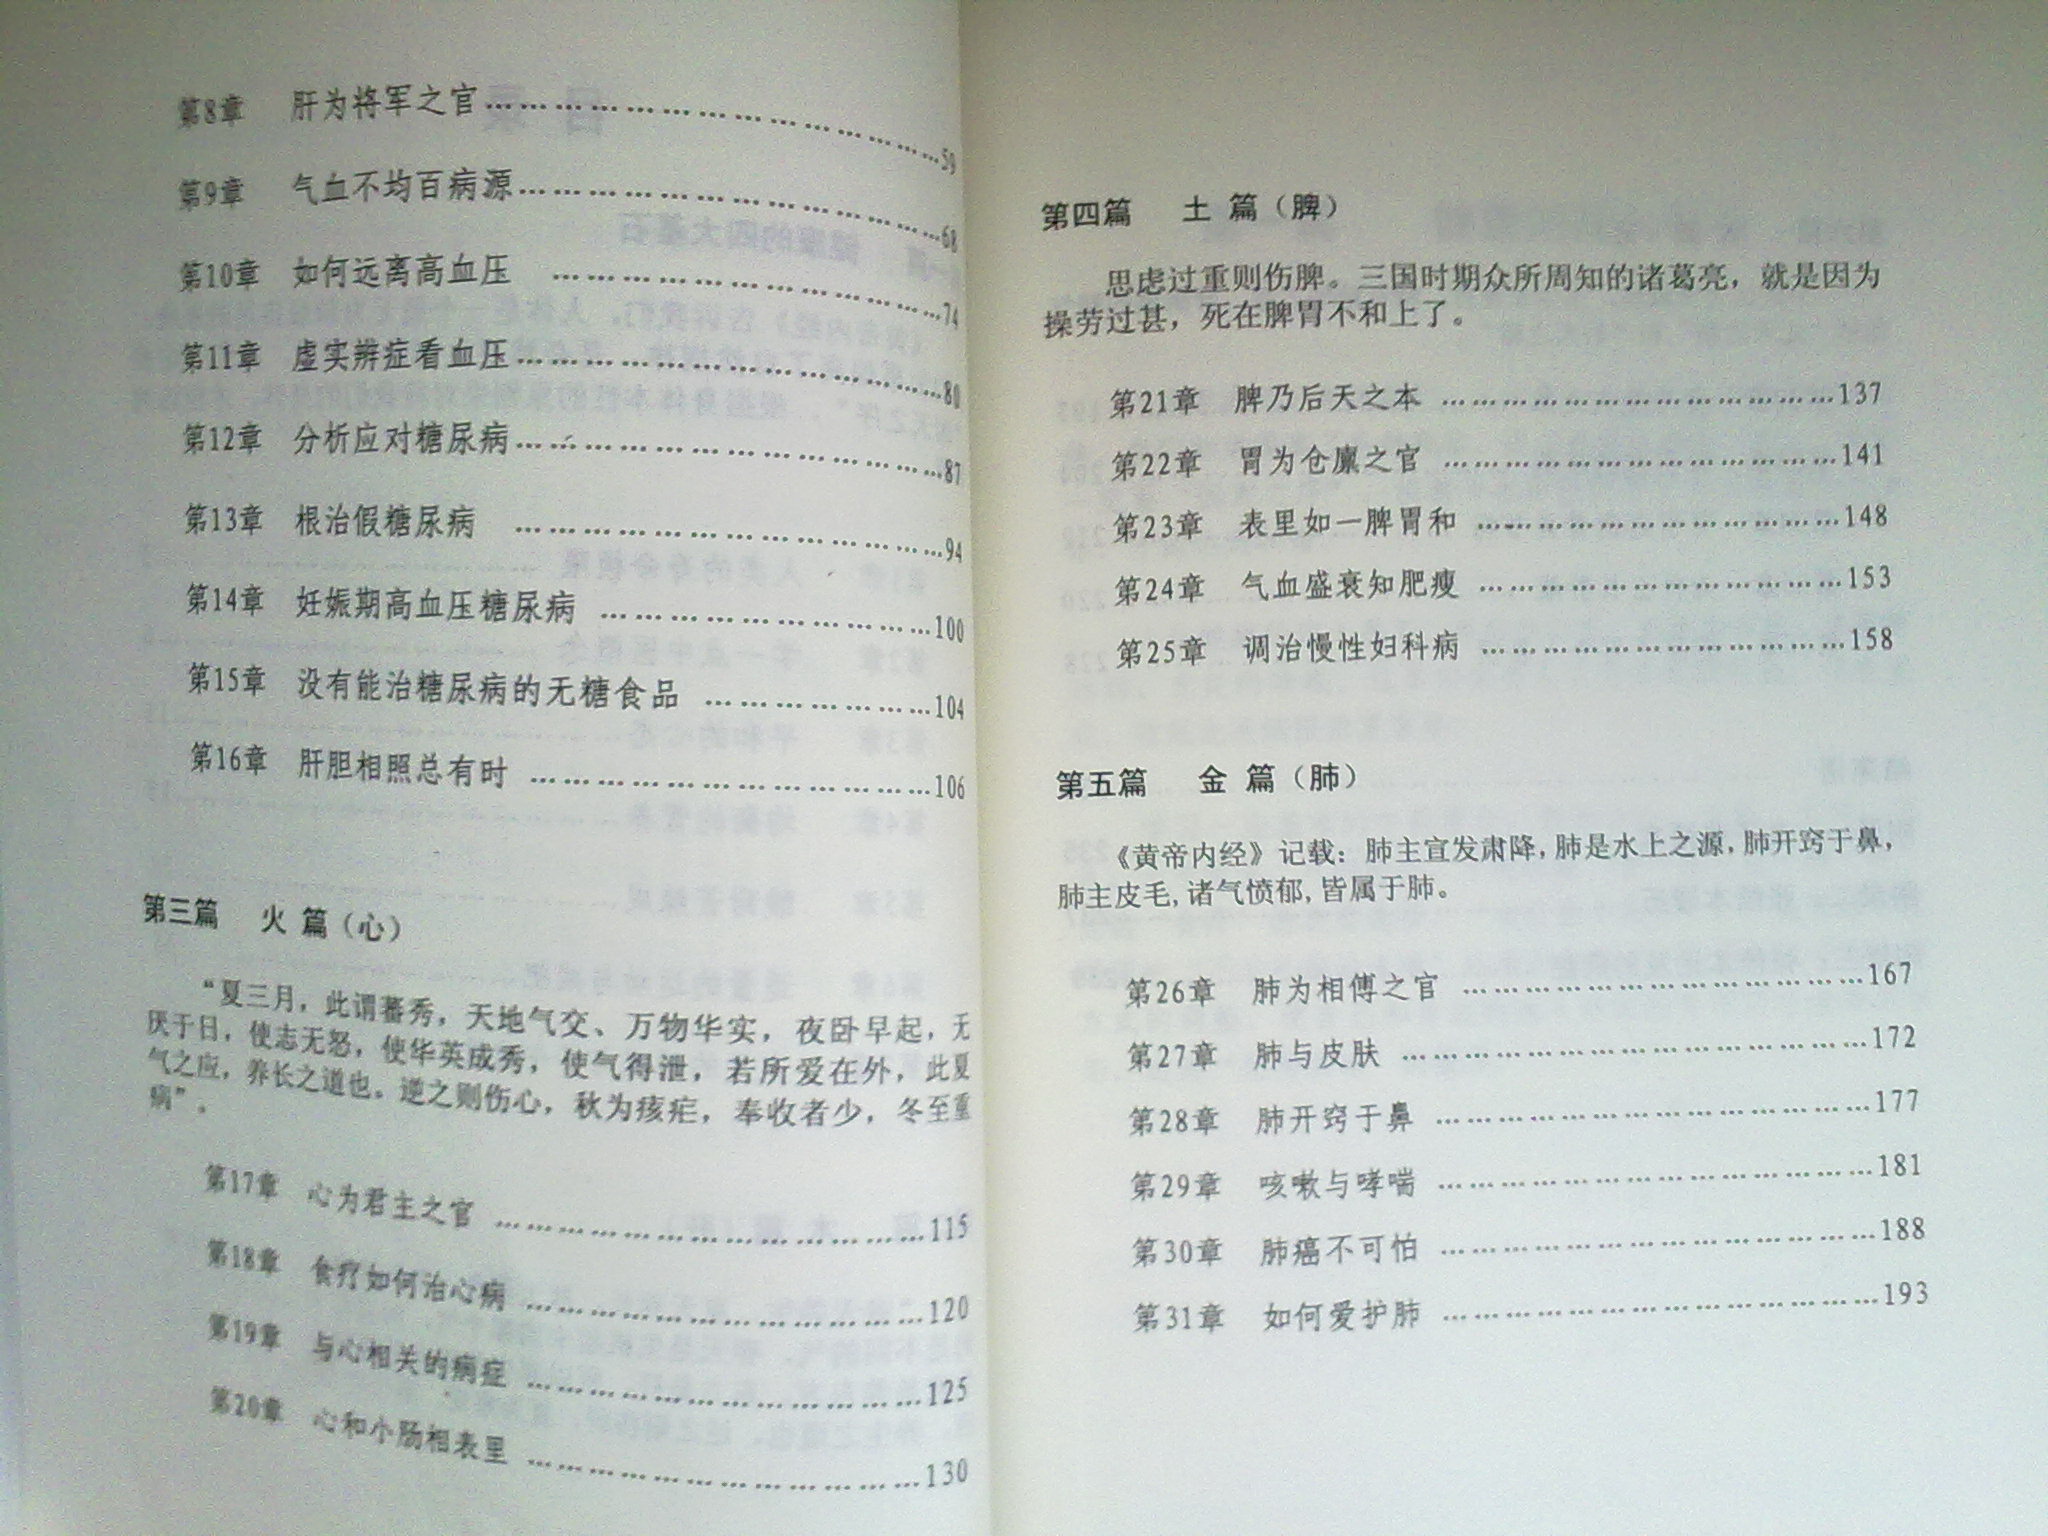 第8章 肝为将军之官………………………………59
第9章 气血不均百病源………………………………68
第10章 如何远离高血压 ………………………………74
第11章 虚实辨症看血压………………………………80
第12章 分析应对糖尿病………………………………87
第13章 根治假糖尿病 ………………………………94
第14章 妊娠期高血压糖尿病 …………………………100
第15章 没有能治糖尿病的无糖食品 …………………104
第16章 肝胆相照总有时 ………………………………106
第三篇 火 篇（心）
“夏三月，此谓蕃秀，天地气交、万物华实，夜卧早起，无
厌于日，使志无怒，使华英成秀，使气得泄，若所爱在外，此夏
气之应，养长之道也。逆之则伤心，秋为痎疟，奉收者少，冬至重
病”。
第17章 心为君主之官 ………………………………115
第18章 食疗如何治心病 ………………………………120
第19章 与心相关的病症 ………………………………125
第20章 心和小肠相表里 ………………………………130
第四篇 土 篇（脾）
思虑过重则伤脾。三国时期众所周知的诸葛亮，就是因为
操劳过甚，死在脾胃不和上了。
第21章 脾乃后天之本 ………………………………137
第22章 胃为仓廪之官 ………………………………141
第23章 表里如一脾胃和 ………………………………148
第24章 气血盛衰知肥瘦 ………………………………153
第25章 调治慢性妇科病 ………………………………158
第五篇 金 篇（肺）
《黄帝内经》记载：肺主宣发肃降，肺是水上之源，肺开窍于鼻，
肺主皮毛，诸气愤郁，皆属于肺。
第26章 肺为相傅之官 ………………………………167
第27章 肺与皮肤 ………………………………172
第28章 肺开窍于鼻 ………………………………177
第29章 咳嗽与哮喘 ………………………………181
第30章 肺癌不可怕 ………………………………188
第31章 如何爱护肺 ………………………………193